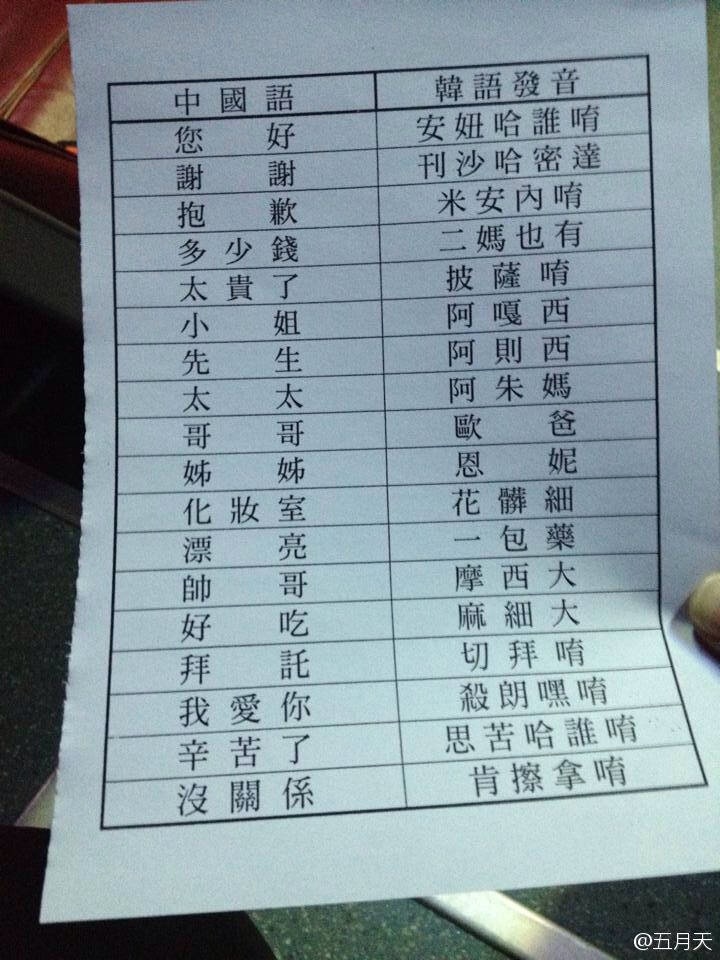 中國語 韓語發音
您好 安妞哈誰唷
謝謝 刊沙哈密達
抱歉 米安內唷
多少錢 二媽也有
太貴了 披薩唷
小姐 阿嘎西
先生 阿則西
太太 阿朱媽
哥哥 歐爸
姊姊 恩妮
化妝室 花髒細
漂亮 一包藥
帥哥 摩西大
好吃 麻細大
拜託 切拜唷
我愛你 殺朗嘿唷
辛苦了 思苦哈誰唷
沒關係 肯擦拿唷
@五月天